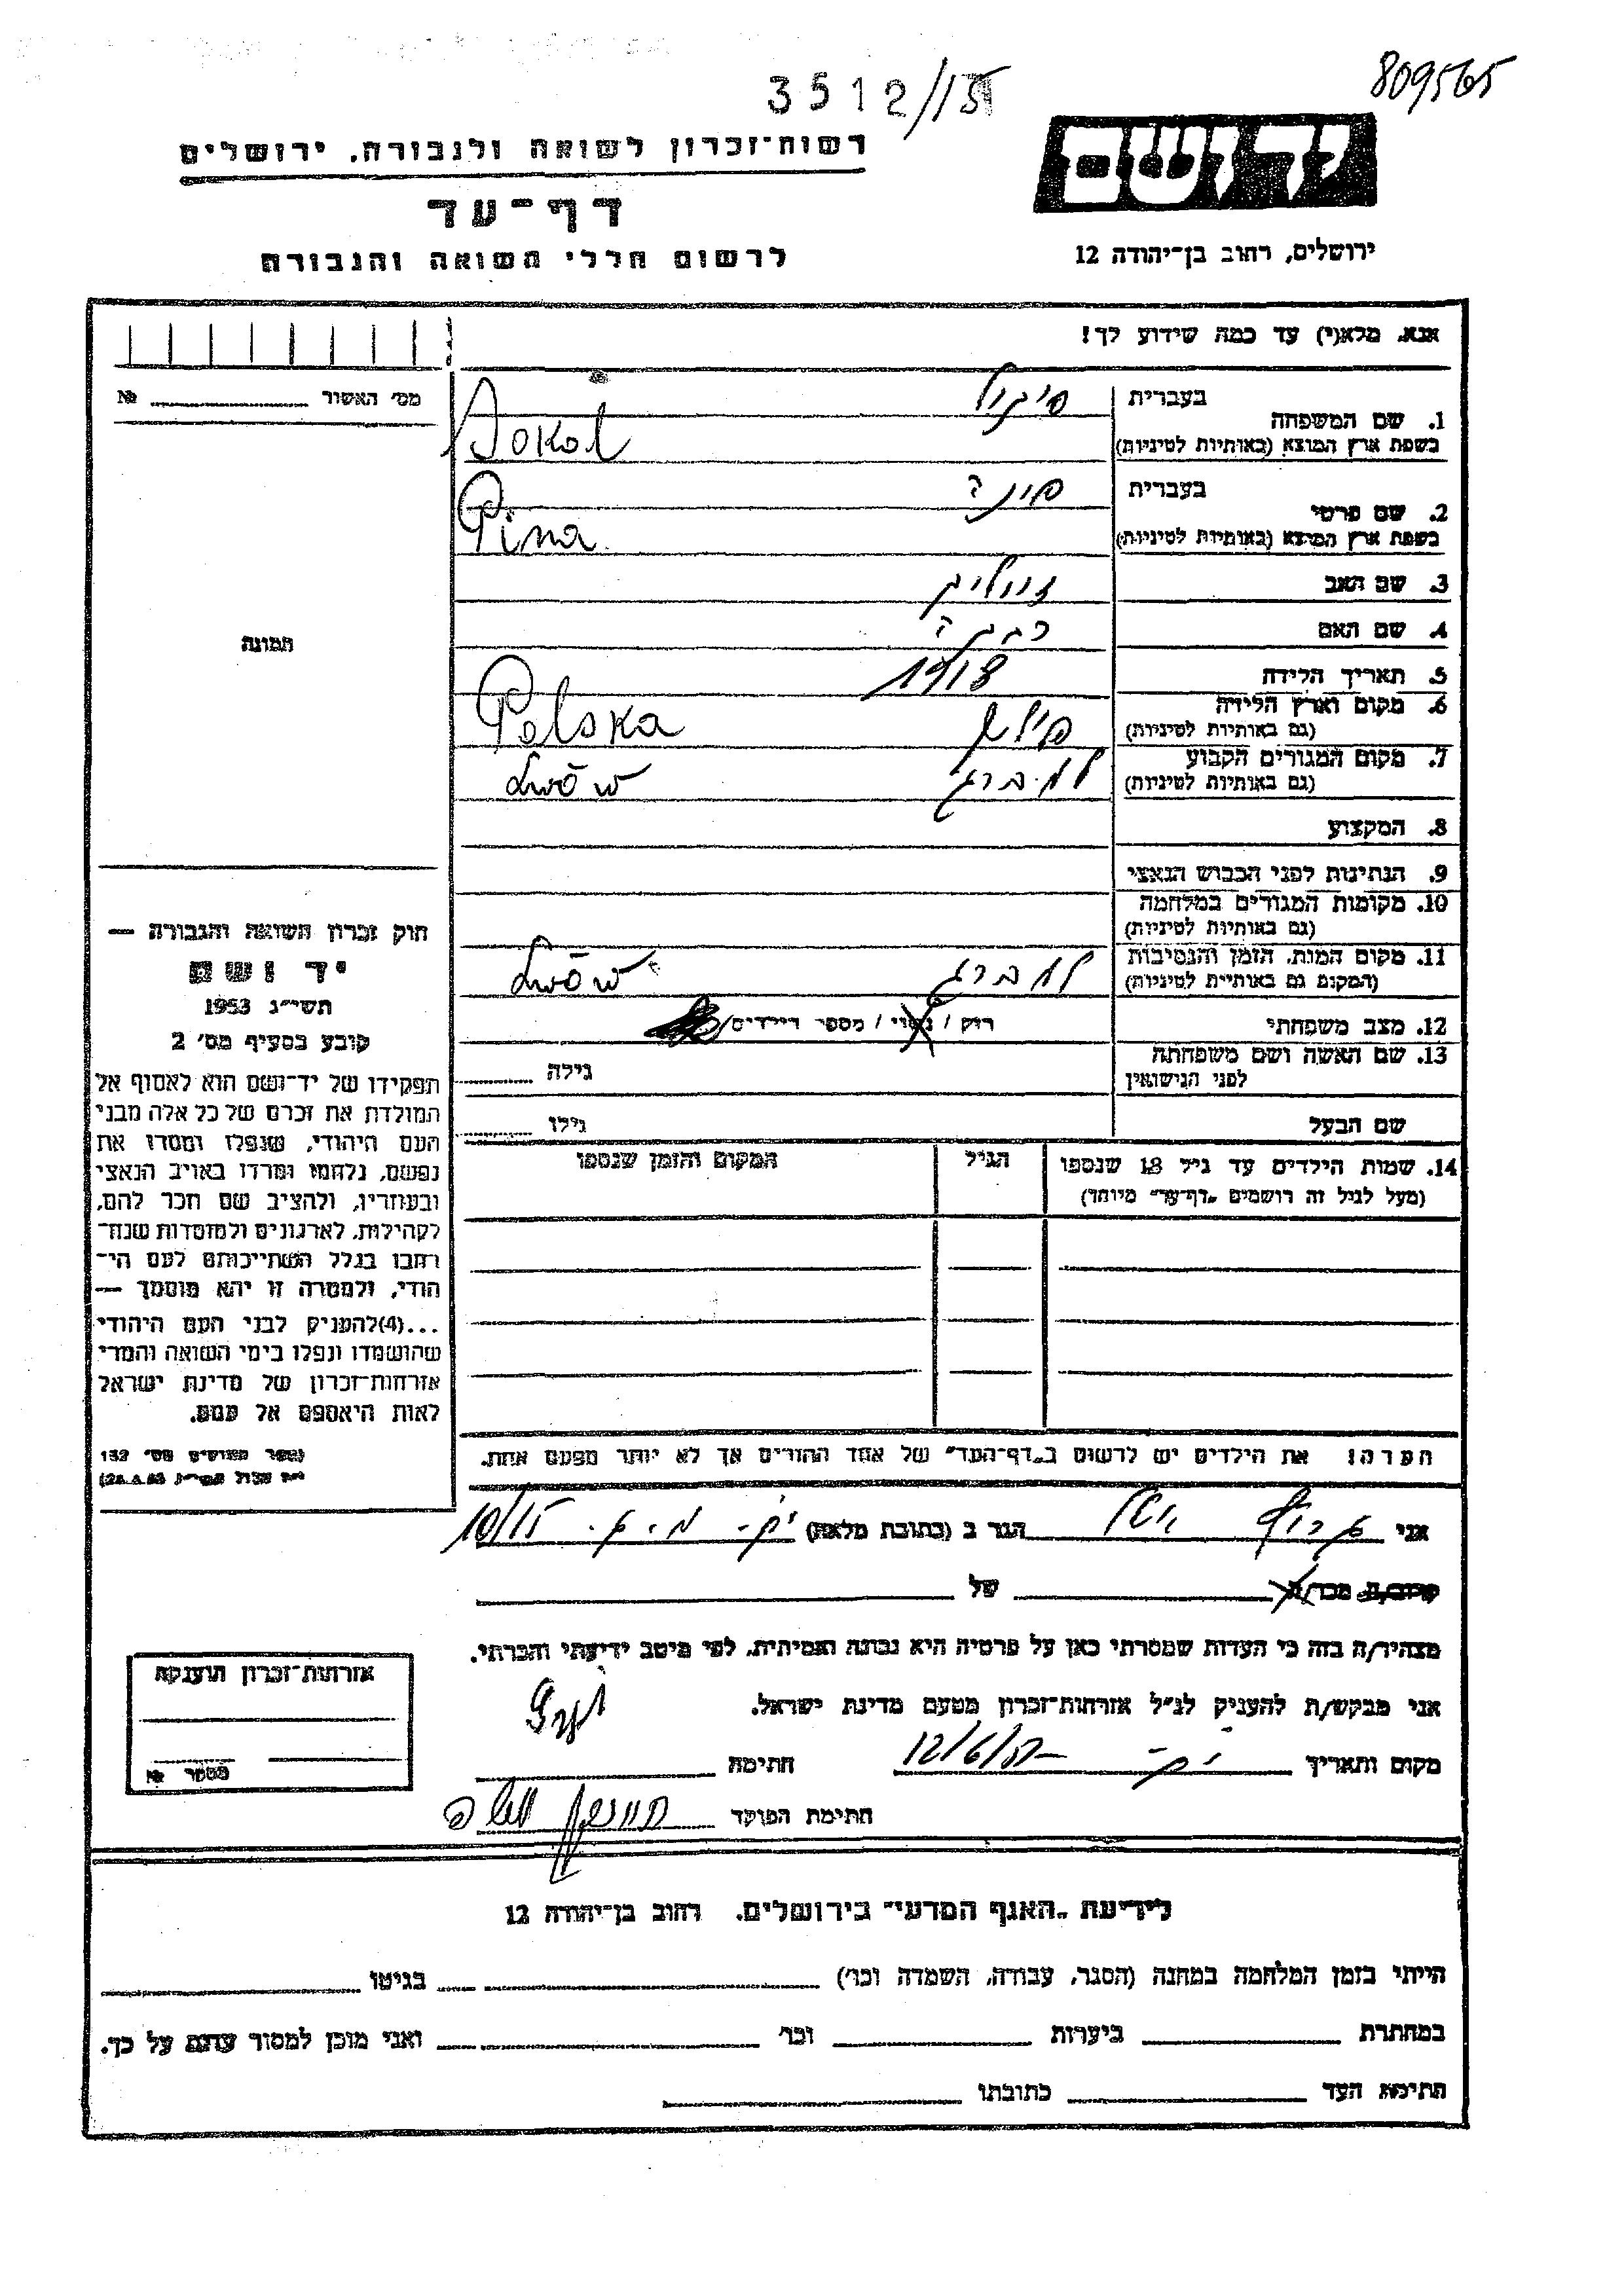 809565
3512/15
יד ושם
רשות־זכרון לשואה ולגבורה. ירושלים
דף־עד
לרשום חללי השואה והגבורה
ירושלים, רחוב בן־יהודה 12
אנא. מלא(י) עד כמה שידוע לך!
מס' האשור № 
1. שם המשפחה
בעברית סוקול
בשפת ארץ המוצא (באותיות לטיניות) Sokol
2. שם פרטי
בעברית פינה
בשפת ארץ המוצא (באותיות לטיניות) Pina
3. שם האב
4. שם האם
5. תאריך הלידה 1918
6. מקום וארץ הלידה
(גם באותיות לטיניות) פולין Polska
7. מקום המגורים הקבוע
(גם באותיות לטיניות) למברג Lwów
8. המקצוע
9. הנתינות לפני הכבוש הנאצי
10. מקומות המגורים במלחמה
(גם באותיות לטיניות)
11. מקום המות. הזמן והנסיבות
(המקום גם באותיות לטיניות) למברג Lwów
12. מצב משפחתי רוק / נשוי / מספר הילדים
13. שם האשה ושם משפחתה
לפני הנישואין גילה
שם הבעל גילו
14. שמות הילדים עד גיל 18 שנספו הגיל המקום והזמן שנספו
(מעל לגיל זה רושמים „דף־עד" מיוחד)
הערה: את הילדים יש לרשום ב„דף־העד" של אחד ההורים אך לא יותר מפעם אחת.
תמונה
חוק זכרון השואה והגבורה —
יד ושם
תשי״ג 1953
קובע בסעיף מס׳ 2
תפקידו של יד־ושם הוא לאסוף אל
המולדת את זכרם של כל אלה מבני
העם היהודי, שנפלו ומסרו את
נפשם, נלחמו ומרדו באויב הנאצי
ובעוזריו, ולהציב שם וזכר להם,
לקהילות, לארגונים ולמוסדות שנח־
רבו בגלל השתייכותם לעם הי־
הודי, ולמטרה זו יהא מוסמך —
...(4)להעניק לבני העם היהודי
שהושמדו ונפלו בימי השואה והמרי
אזרחות־זכרון של מדינת ישראל
לאות היאספם אל עמם.
אני הגר ב (כתובת מלאה) 10/15
קרוב/ה מכר/ה של
מצהיר/ה בזה כי העדות שמסרתי כאן על פרטיה היא נכונה ואמיתית, לפי מיטב ידיעתי והכרתי.
אני מבקש/ת להעניק לנ״ל אזרחות־זכרון מטעם מדינת ישראל.
מקום ותאריך 12/6/ חתימה
חתימת הפוקד
אזרחות־זכרון הוענקה
מספר №
לידיעת „האגף המדעי" בירושלים. רחוב בן־יהודה 12
הייתי בזמן המלחמה במחנה (הסגר, עבודה, השמדה וכו׳) בגיטו
במחתרת ביערות וכו׳ ואני מוכן למסור עדות על כך.
חתימת העד כתובתו